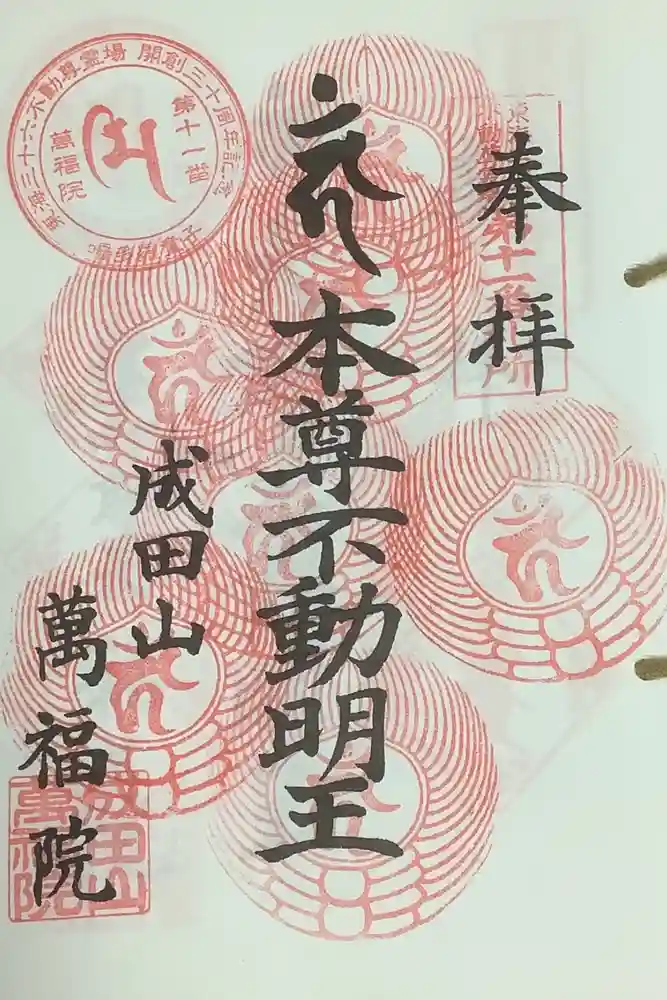 奉拝
本尊不動明王
成田山
萬福院
東海三十六不動尊霊場 開創三十周年記念
第十一番
萬福院
成田山
萬福院